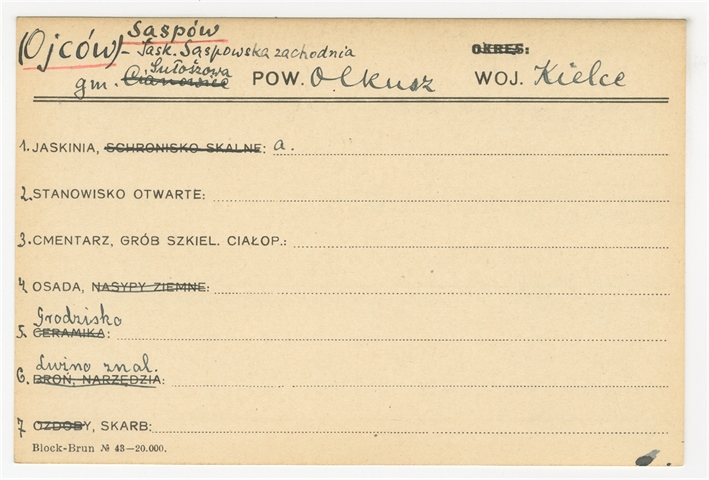 Sąspów
(Ojców) – Jask. Sąspowska zachodnia
OKRES:
Sułoszowa
gm. Cianowice POW. Olkusz WOJ. Kielce
1. JASKINIA, SCHRONISKO SKALNE: a.
2. STANOWISKO OTWARTE:
3. CMENTARZ, GRÓB SZKIEL. CIAŁOP.:
4 OSADA, NASYPY ZIEMNE:
Grodzisko
5. CERAMIKA:
Luźno znal.
6. BROŃ, NARZĘDZIA:
7 OZDOBY, SKARB:
Block-Brun № 43—20.000.